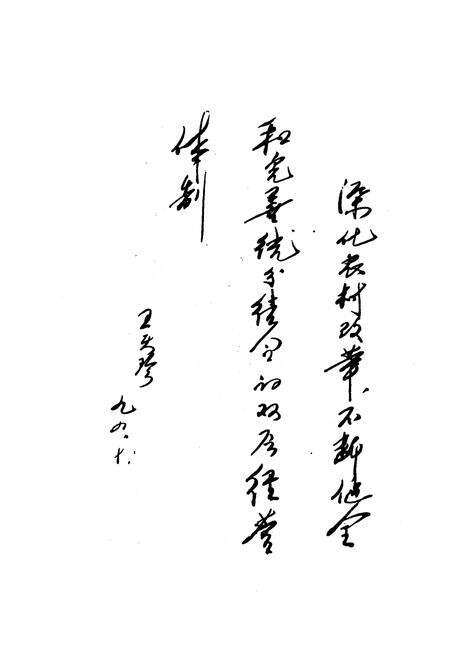 深化农村改革、不断健全
和完善统分结合的双层经营
体制
王
九〇.十.